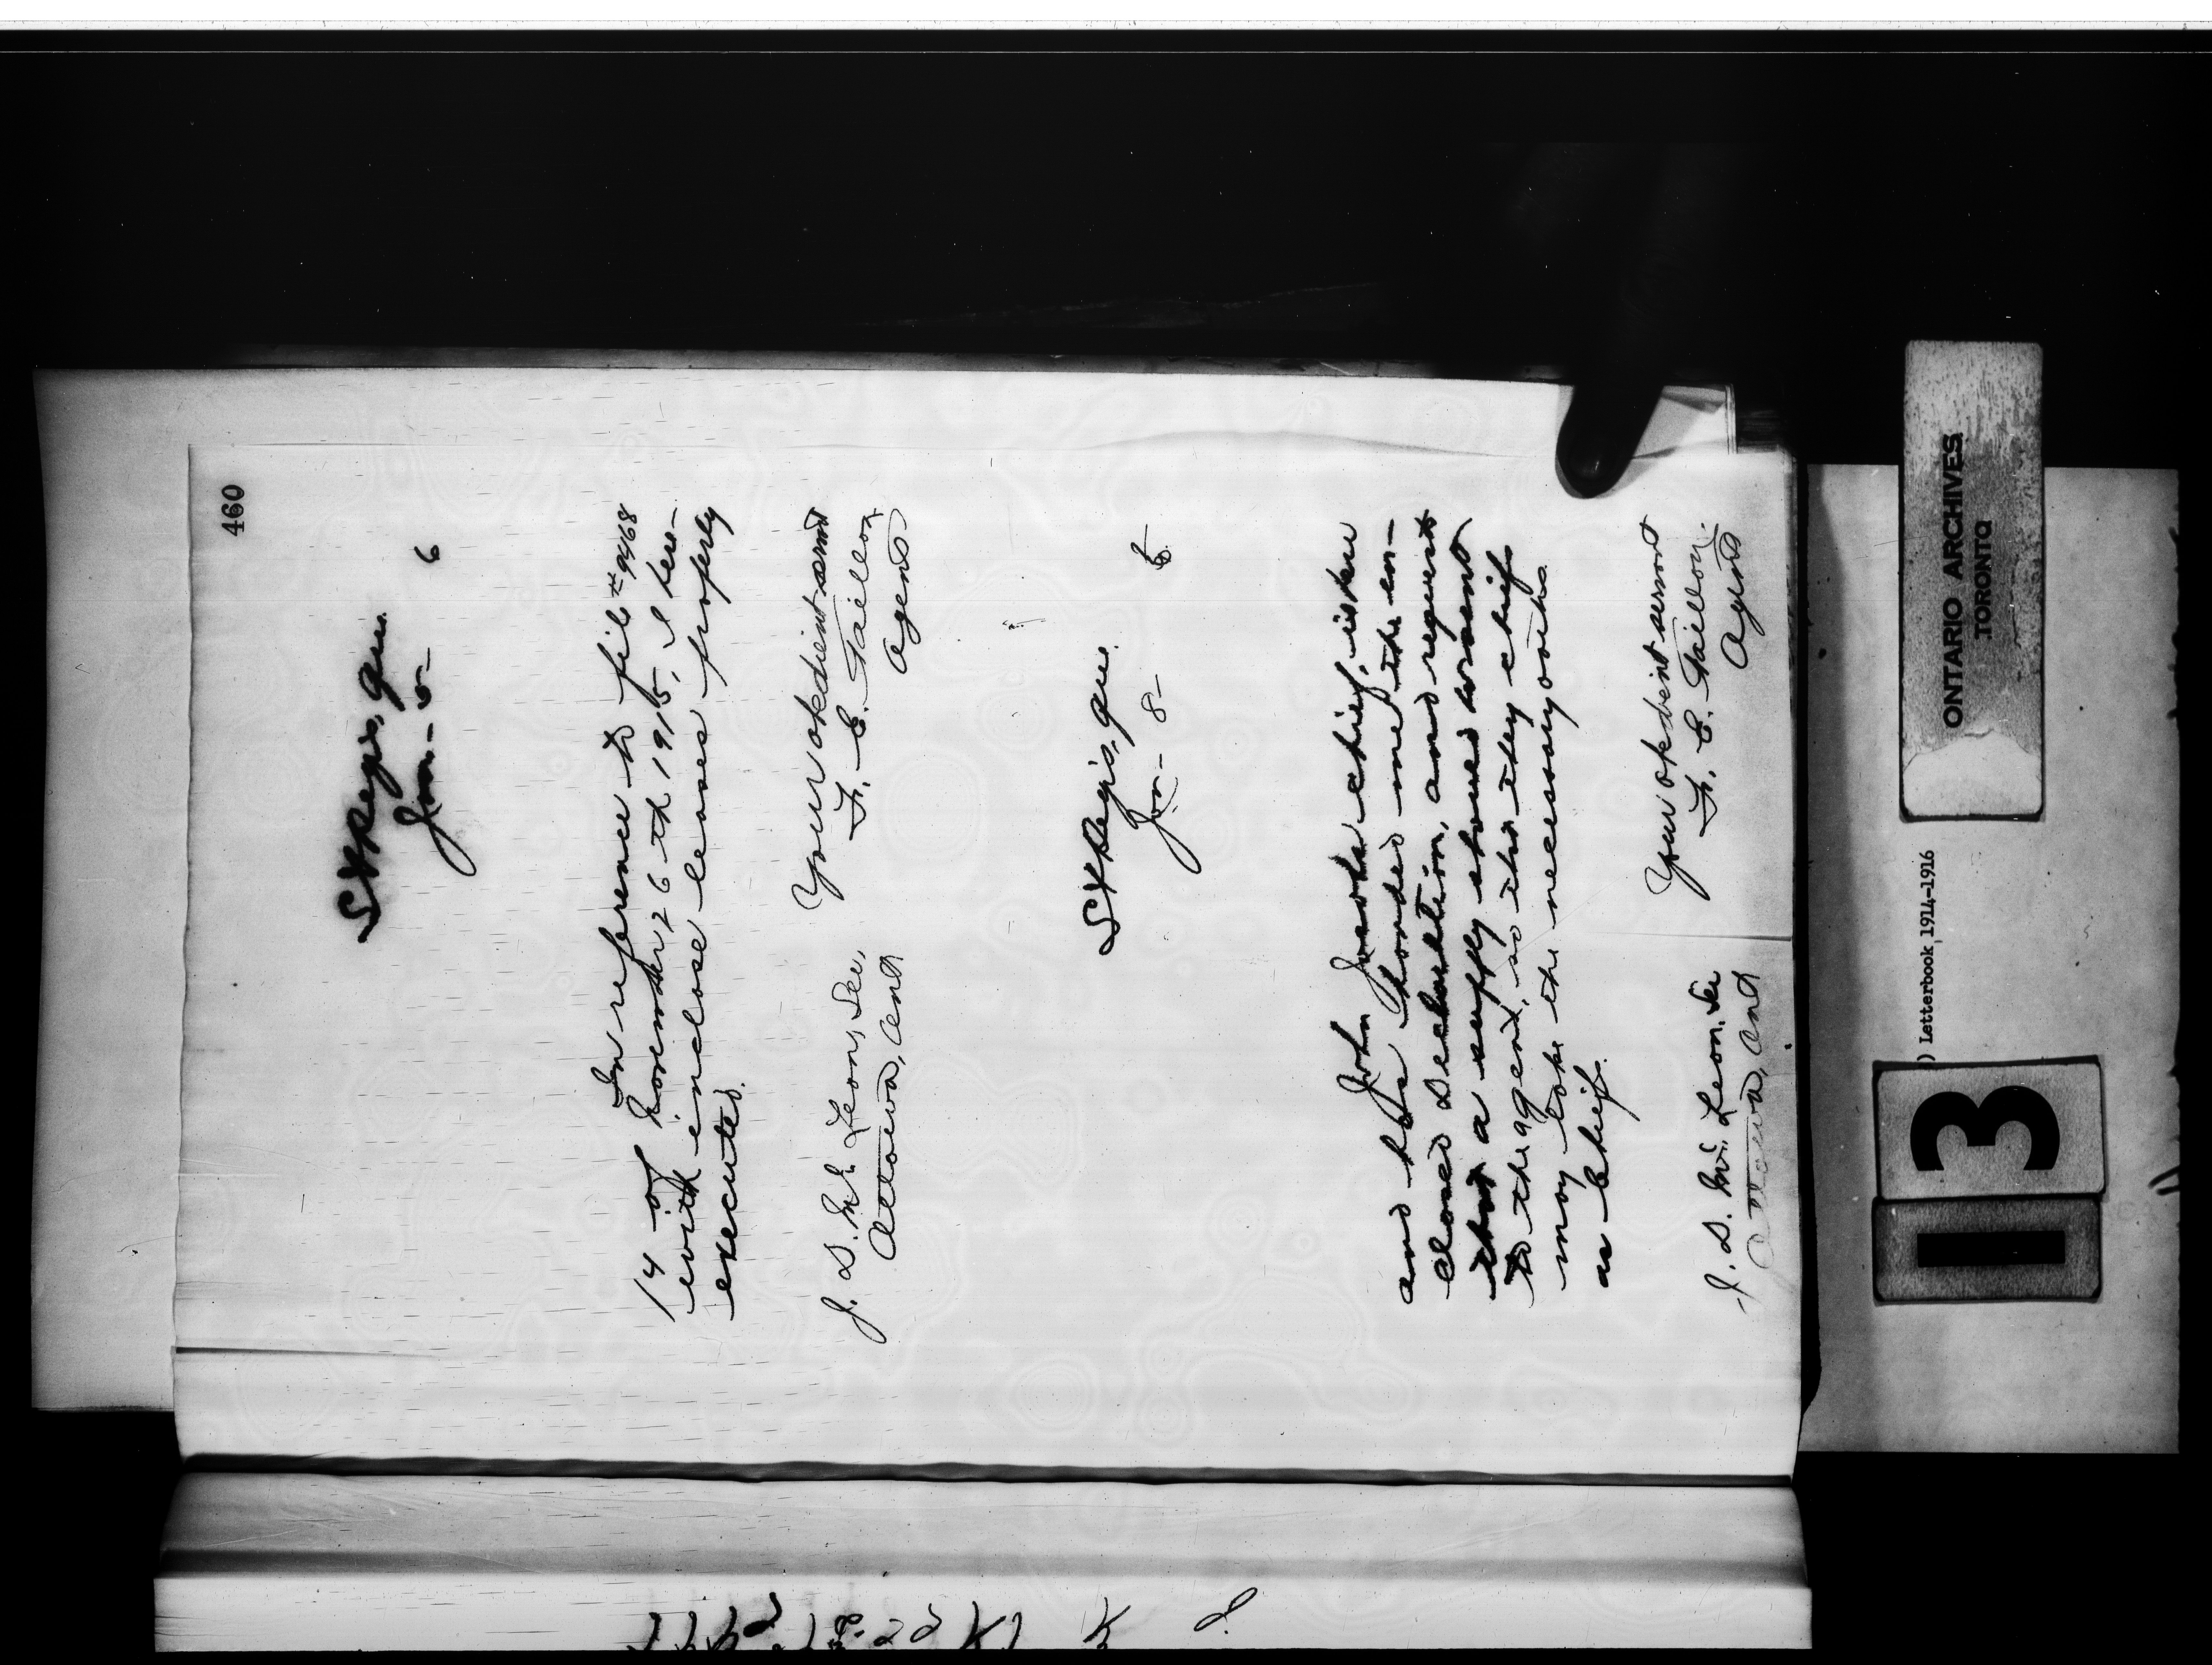 460
St Regis, Que.
Jan- 5- 6
In reference to file # 9468
14 of November 26th 1915, I here-
with inclose leases properly
executed.
Your obedient servant
F. E. Taillon,
Agent
J. D. McLean, Sec,
Ottawa, Ont
St Regis, Que.
Jan- 8- 6
John chief, is here
and has handed me the en-
closed declaration, and requests
that a supply should be sent
to the agent, so that they chief
may take the necessary oaths
as Chief.
Your obedient servant
F. E. Taillon.
Agent
J. D. McLean, Sec
Ottawa, Ont
ONTARIO ARCHIVES
TORONTO
) Letterbook 1914-1916
13